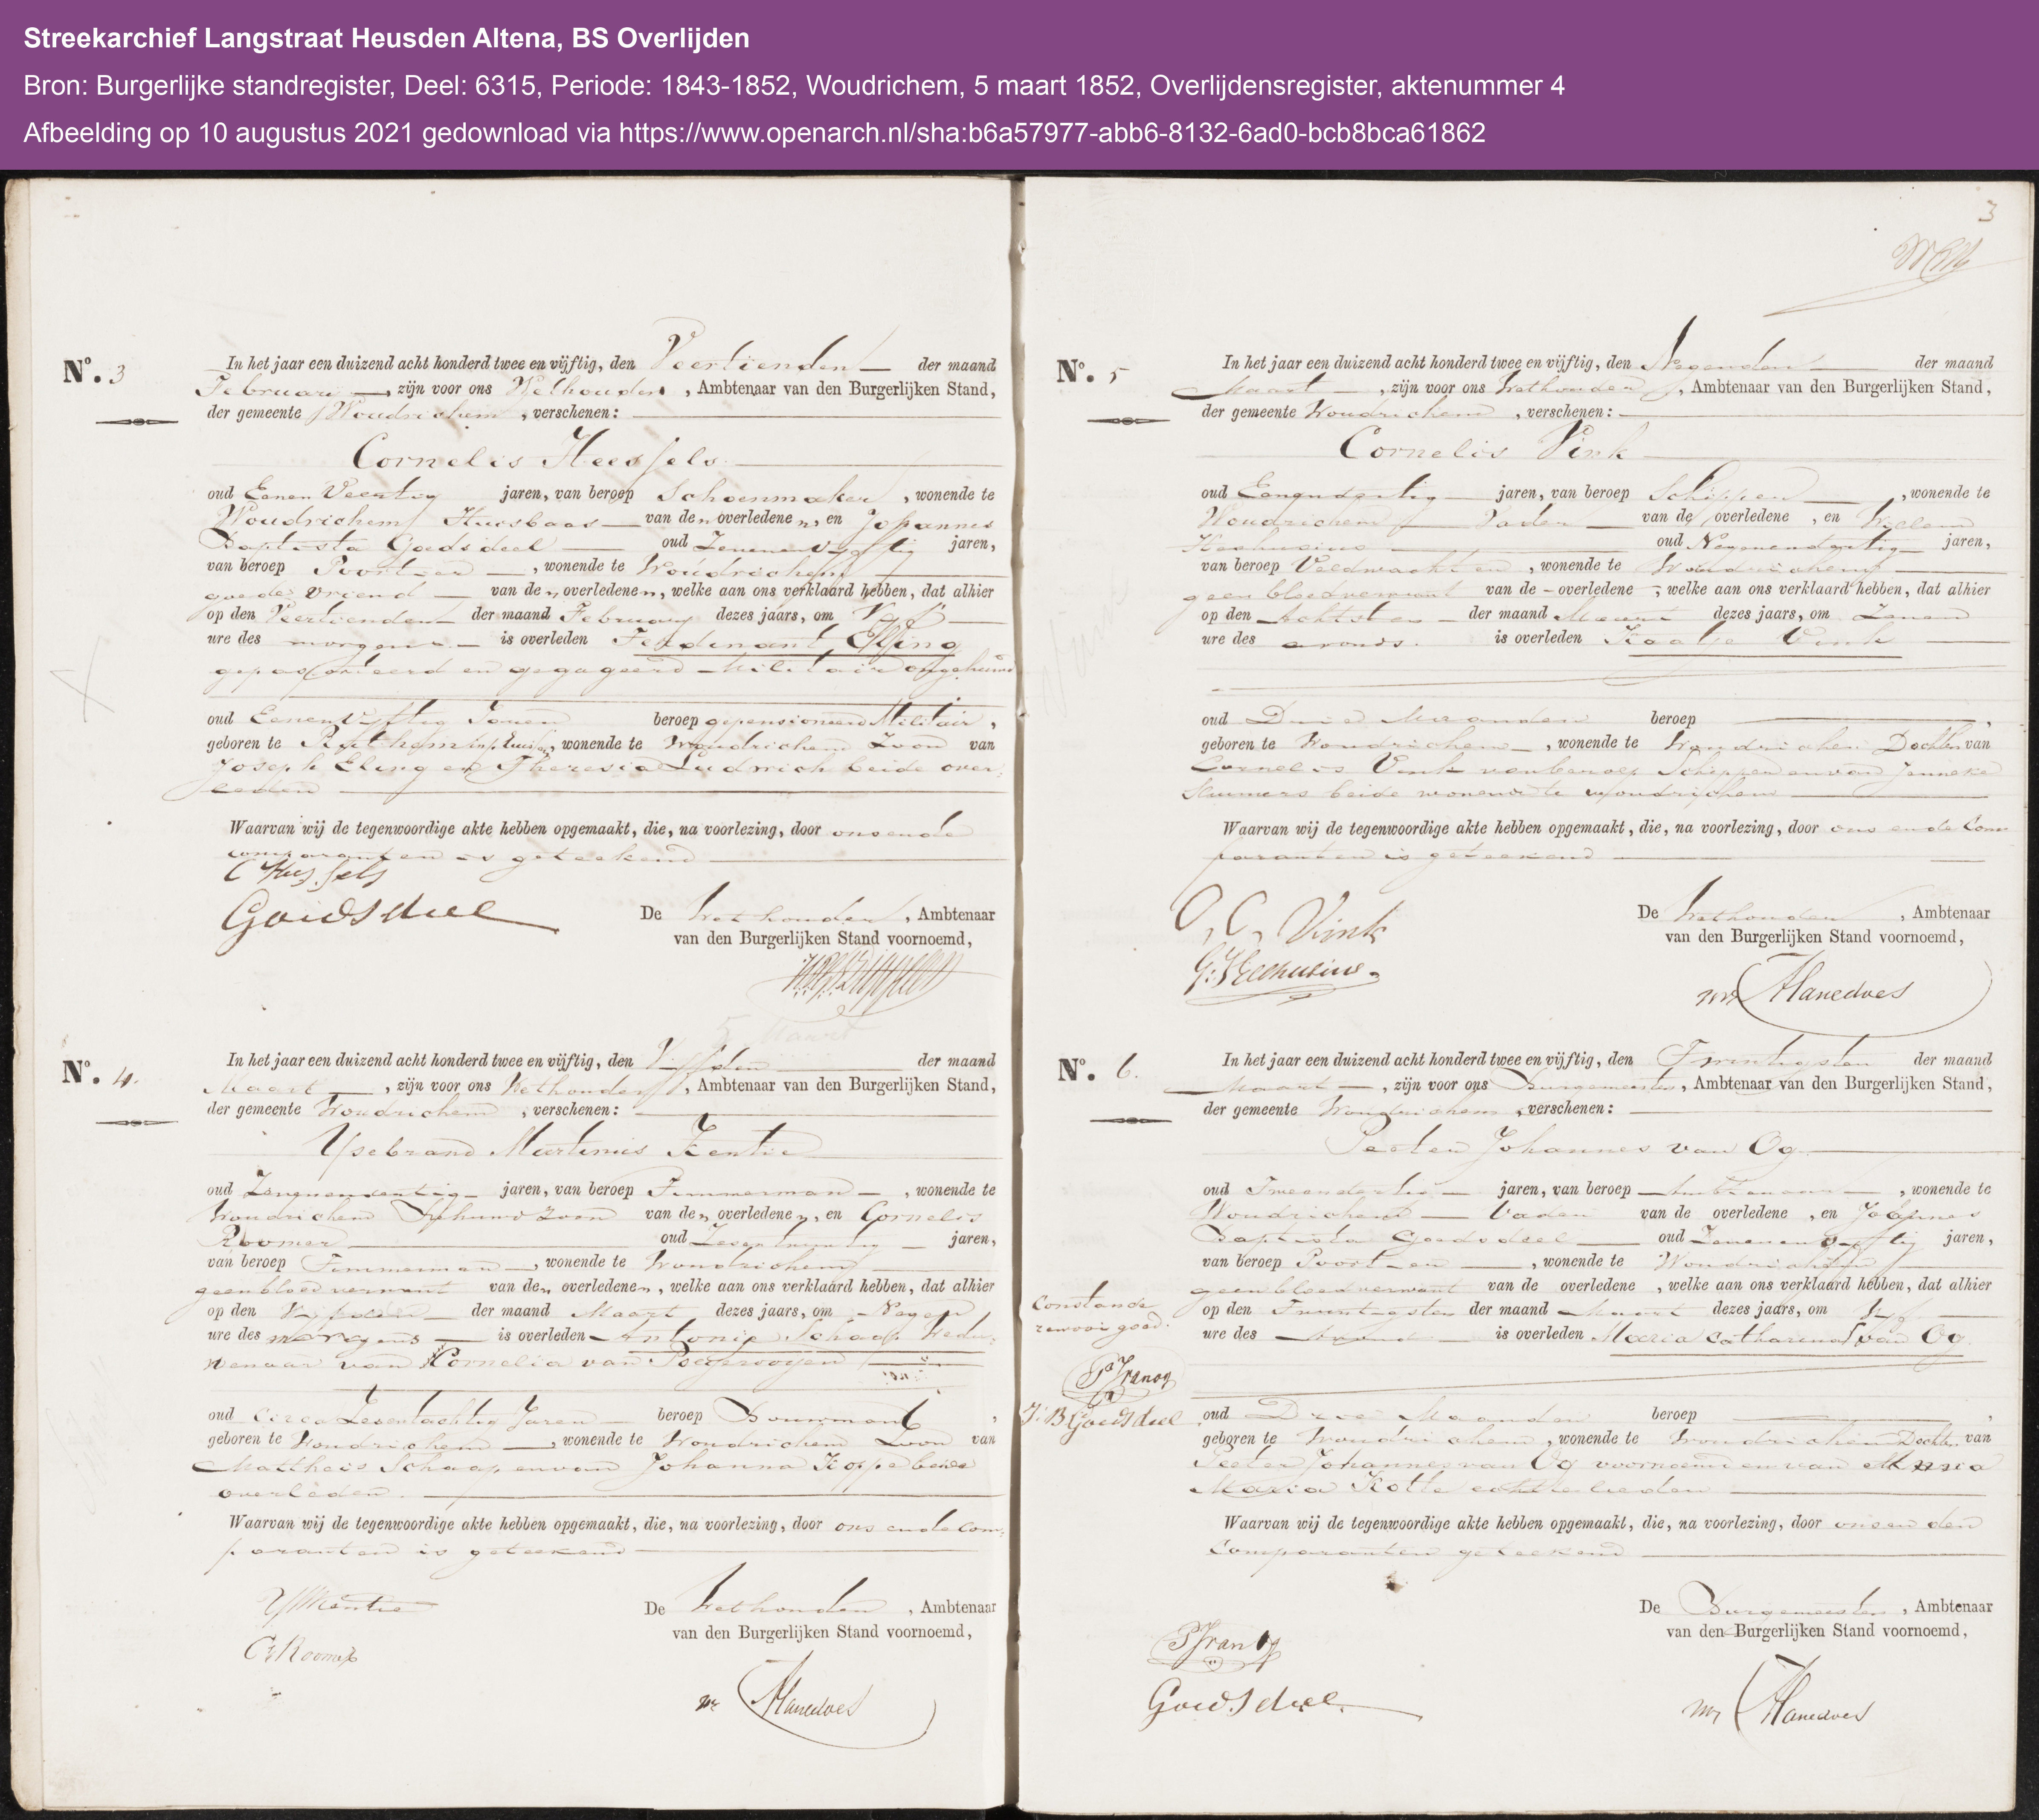 Streekarchief Langstraat Heusden Altena, BS Overlijden
Bron: Burgerlijke standregister, Deel: 6315, Periode: 1843-1852, Woudrichem, 5 maart 1852, Overlijdensregister, aktenummer 4
Afbeelding op 10 augustus 2021 gedownload via https://www.openarch.nl/sha:b6a57977-abb6-8132-6ad0-bcb8bca61862
No. 3
In het jaar een duizend acht honderd twee en vijftig, den Veertienden der maand
Februari, zijn voor ons Wethouder, Ambtenaar van den Burgerlijken Stand,
der gemeente Woudrichem, verschenen:
Cornelis Heessels
oud Eenen Veertig jaren, van beroep Schoenmaker, wonende te
Woudrichem Huisbaas van den overledenen, en Johannes
Baptista Goedsdeel oud Zevenenvyftig jaren,
van beroep Poortier, wonende te Woudrichem
goede vriend van den overledenen, welke aan ons verklaard hebben, dat alhier
op den Veertienden der maand February dezes jaars, om Vyf
ure des morgens is overleden Ferdinant Elsing
gepasporteerd en gegageerd Militair ongehuwd
oud Eenenvyftig Jaren beroep gepensioneerd Militair,
geboren te wonende te Woudrichem Zoon van
Joseph Elsing en Theresia Ludwich beide over-
leden
Waarvan wij de tegenwoordige akte hebben opgemaakt, die, na voorlezing, door ons ende
comparanten is geteekend
C Heessels
Goedsdeel
De Wethouder, Ambtenaar
van den Burgerlijken Stand voornoemd,
5 Maart
No. 4.
In het jaar een duizend acht honderd twee en vijftig, den Vijfden der maand
Maart, zijn voor ons Wethouder, Ambtenaar van den Burgerlijken Stand,
der gemeente Woudrichem, verschenen:
Ysebrand Martinus Kentie
oud Zevenendertig jaren, van beroep Timmerman, wonende te
Woudrichem Behuwd Zoon van den overledenen, en Cornelis
Roomer oud Zesentwintig jaren,
van beroep Timmerman, wonende te Woudrichem
geen bloedverwant van den overledenen, welke aan ons verklaard hebben, dat alhier
op den Vijfden der maand Maart dezes jaars, om Negen
ure des morgens is overleden Antonie Schaap Wedu-
wenaar van Cornelia van
oud circa Zesentachtig Jaren beroep Bouwman,
geboren te Woudrichem, wonende te Woudrichem Zoon van
Mattheis Schaap en van Johanna Koppe beide
overleden.
Waarvan wij de tegenwoordige akte hebben opgemaakt, die, na voorlezing, door ons ende com-
paranten is geteekend
YM Kentie
C Roomer
De Wethouder, Ambtenaar
van den Burgerlijken Stand voornoemd,
3
No. 5
In het jaar een duizend acht honderd twee en vijftig, den Negenden der maand
Maart, zijn voor ons Wethouder, Ambtenaar van den Burgerlijken Stand,
der gemeente Woudrichem, verschenen:
Cornelis Vink
oud Eenendertig jaren, van beroep Schipper, wonende te
Woudrichem Vader van de overledene, en Willem
oud Negenendertig jaren,
van beroep Veldwachter, wonende te Woudrichem
geen bloedverwant van de overledene, welke aan ons verklaard hebben, dat alhier
op den Achtsten der maand Maart dezes jaars, om Zeven
ure des avonds. is overleden Kaatje Vink
oud Drie Maanden beroep
geboren te Woudrichem, wonende te Woudrichem Dochter van
Cornelis Vink van beroep Schipper en van Janneke
beide wonende te Woudrichem
Waarvan wij de tegenwoordige akte hebben opgemaakt, die, na voorlezing, door ons en de Com-
paranten is geteekend
C, Vink
De Wethouder, Ambtenaar
van den Burgerlijken Stand voornoemd,
No. 6.
In het jaar een duizend acht honderd twee en vijftig, den Twintigsten der maand
Maart, zijn voor ons Burgemeester, Ambtenaar van den Burgerlijken Stand,
der gemeente Woudrichem, verschenen:
Peeter Johannes van Og
oud Tweendertig jaren, van beroep Ambtenaar, wonende te
Woudrichem Vader van de overledene, en Johannes
Baptista Goedsdeel oud Zevenenvyftig jaren,
van beroep Poortier, wonende te Woudrichem
geen bloedverwant van de overledene, welke aan ons verklaard hebben, dat alhier
op den Twintigsten der maand Maart dezes jaars, om
ure des is overleden Maria Catharina van Og
Goedsdeel
oud Drie Maanden beroep
geboren te Woudrichem, wonende te Woudrichem Dochter van
Peeter Johannes van Og voornoemd en van
Maria Kolle echtelieden
Waarvan wij de tegenwoordige akte hebben opgemaakt, die, na voorlezing, door ons en den
Comparanten geteekend
Goedsdeel
De Burgemeester, Ambtenaar
van den Burgerlijken Stand voornoemd,